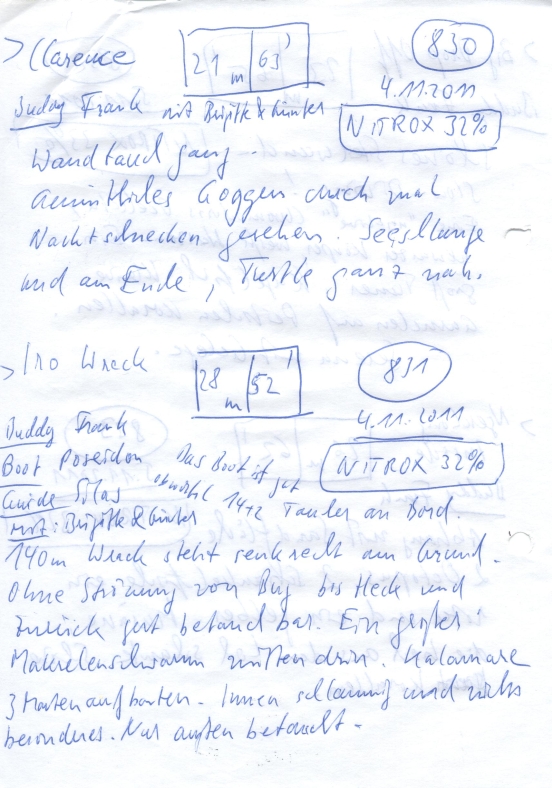 > Clarence 21 m 63' 830
4.11.2011
Buddy Frank mit Brigitte & Günter
NITROX 32%
Wandtauchgang.
Gemütliches
Nacktschnecken gesehen. Seeschlange
und am Ende, Turtle ganz nah.
> Iro Wreck 28 m 52' 831
4.11.2011
Buddy Frank
NITROX 32%
Boot Poseidon Das Boot ist gut
Guide Silas obwohl 14+2 Taucher an Bord.
Mit: Brigitte & Günter
140m Wrack steht senkrecht am Grund.
Ohne Strömung von Bug bis Heck und
zurück gut betauchbar. Ein großer
Makrelenschwarm mitten drin. Kalamare
3 Mastenaufbauten. Innen schlammig und nichts
besonderes. Nur außen betaucht.